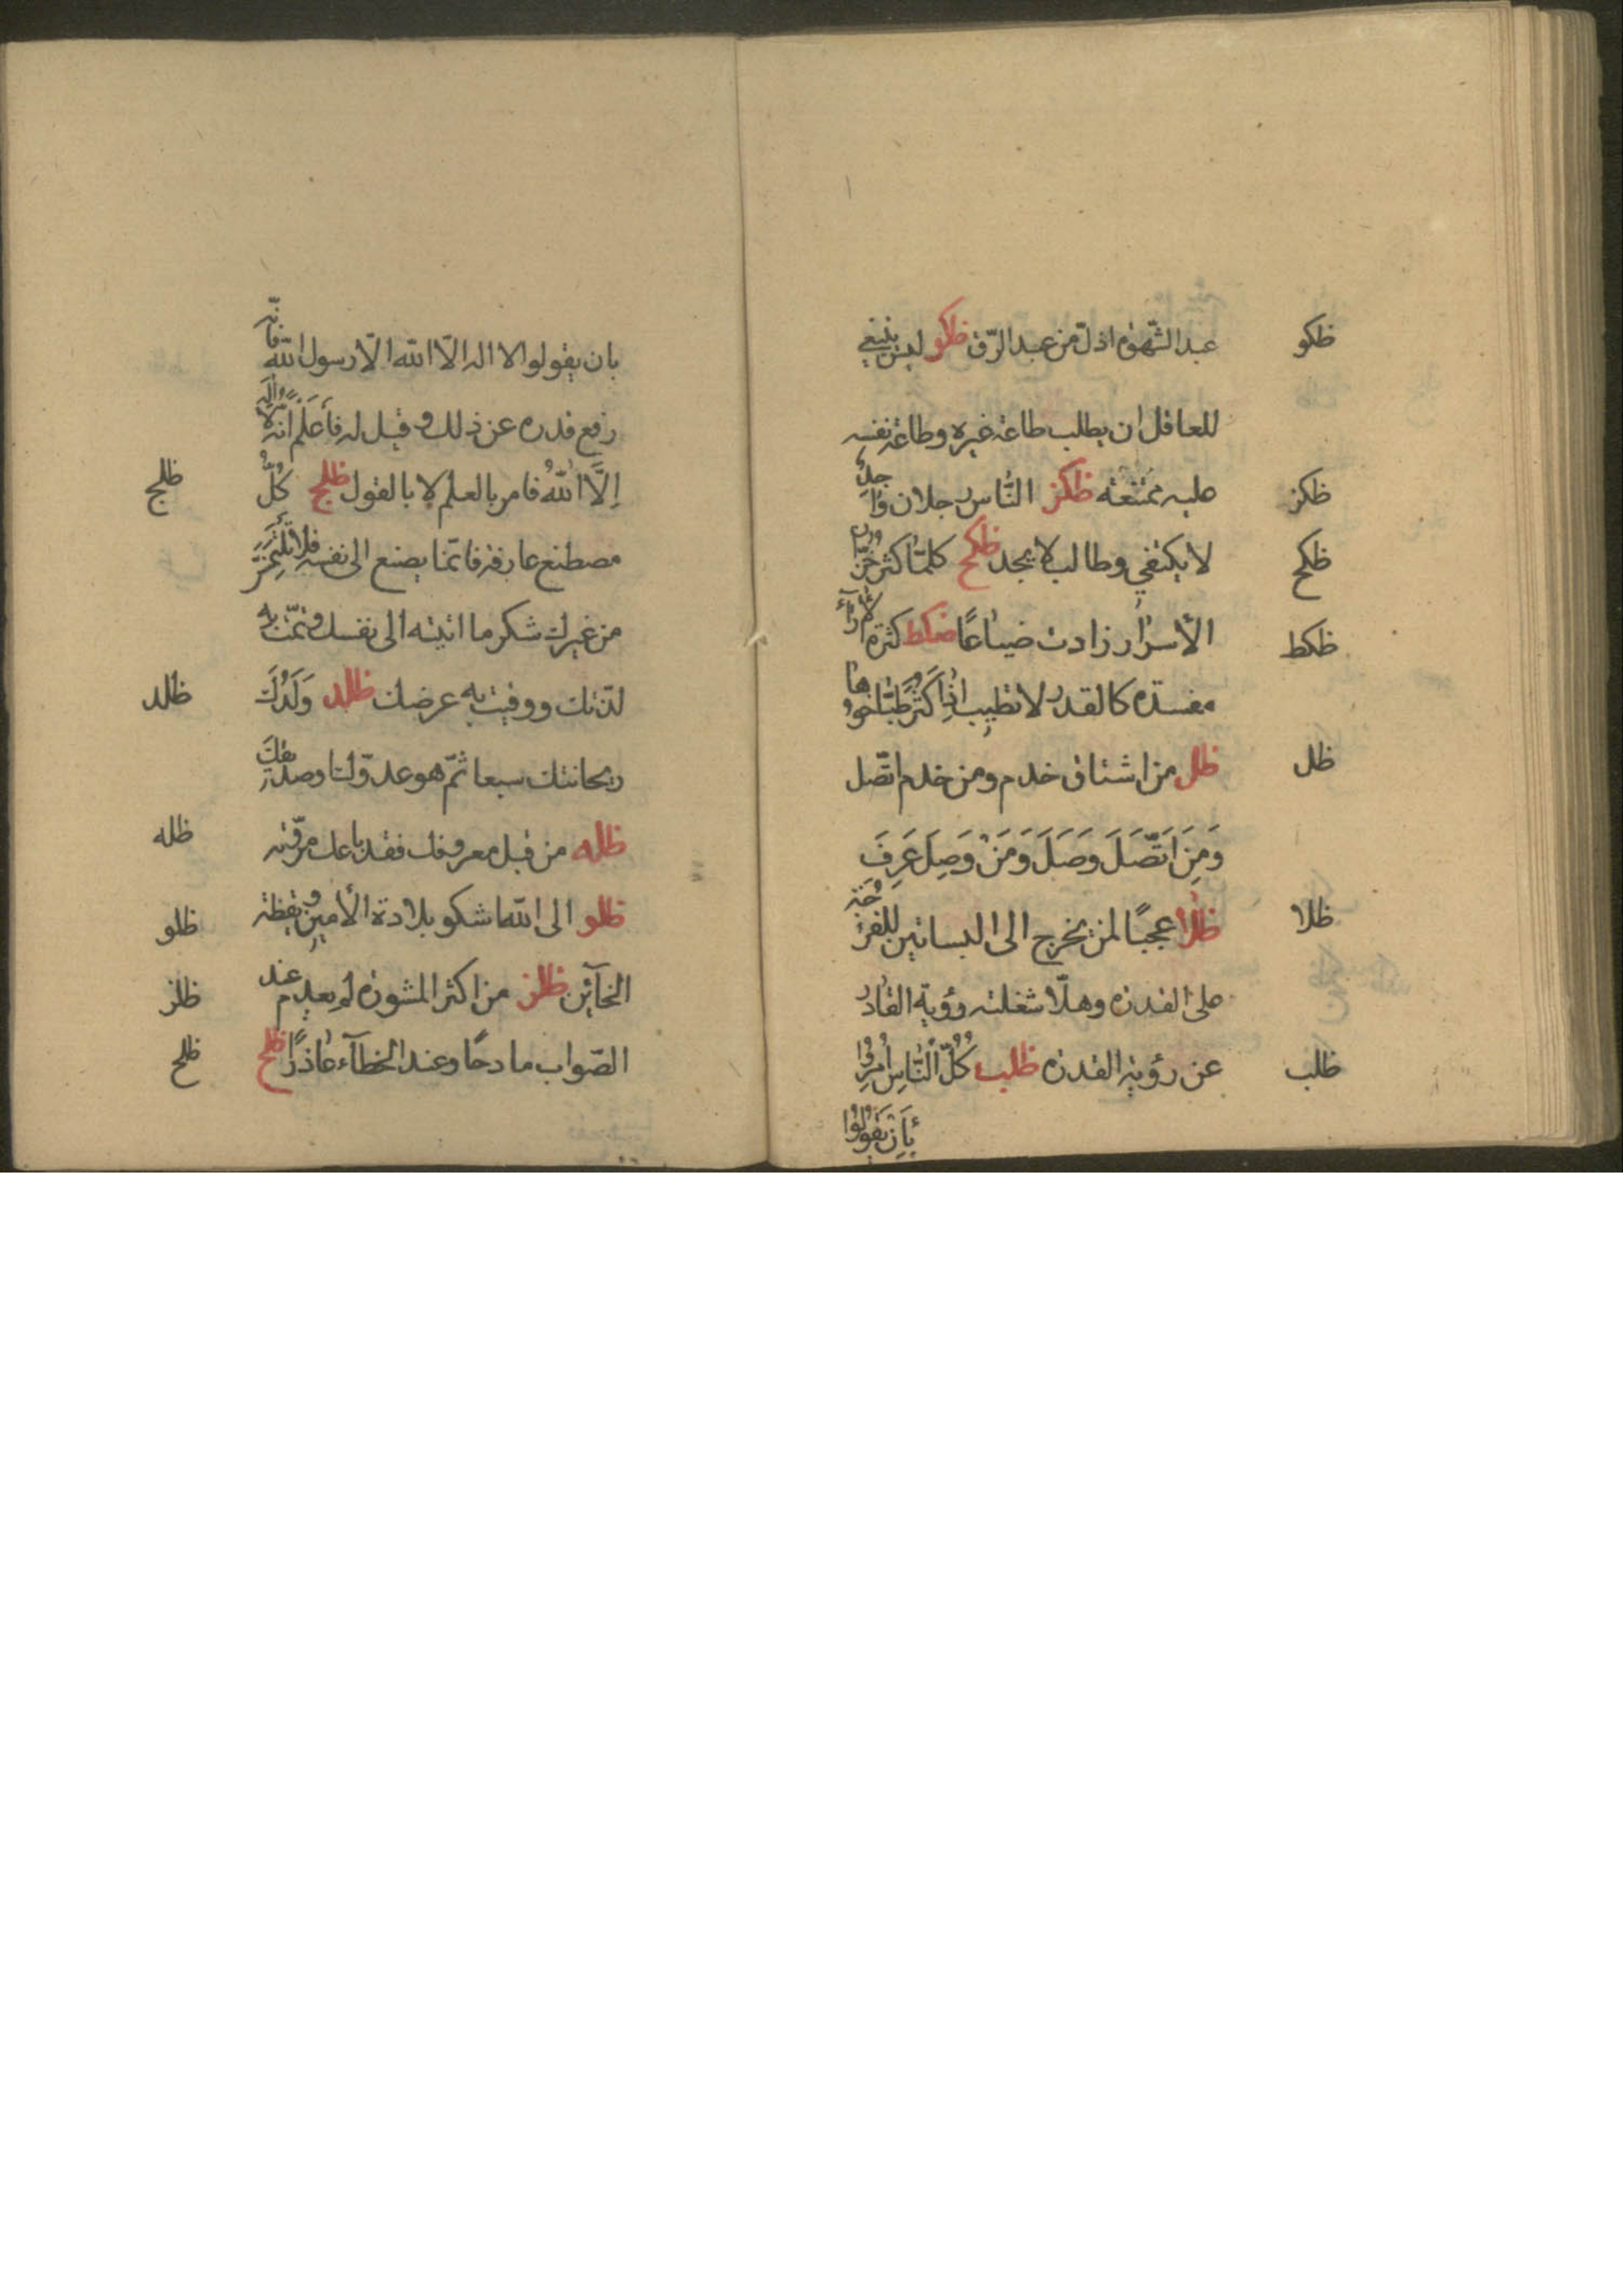 ظكو
عبد الشّهوة اذلّ من عبد الرّق ظكو ليس ينبغي
للعاقل ان يطلب طاعة غيره وطاعة نفسه
ظكز
عليه ممتنعة ظكز النّاس رجلان واجد
ظكح
لا يكتفي وطالب لا يجد ظكح كلّما كثر خزّان
ظكط
الأسرار زادت ضياعًا ظكط كثرة الآراء
مفسدة كالقدر لا تطيب اذا كثر طبّاخوها
ظل
ظل من اشتاق خدم ومن خدم اتّصل
وَمِنَ اتَّصَلَ وَصَلَ وَمَنْ وَصِلَ عَرِفَ
ظلا
ظلا عجبًا لمن يخرج الى البساتين للفرجة
على القدرة وهلّا شغلته رؤية القادر
ظلب
عن رؤية القدرة ظلب كُلُّ النَّاسِ أُمِرُوا
بِأَنْ يَقُولُوا
بان يقولوا لا اله الّا الله الّا رسول الله فانّه
رفع قدره عن ذلك وقيل له فَأَعْلَمْ انّه لا إله
ظلج
اِلَّا اللّٰهُ فامر بالعلم لا بالقول ظلج كُلُّ
مصطنع عارفة فانّما يصنع الى نفسه فلا تلتمس
من غيرك شكر ما اتيته الى نفسك وتمّمت به
ظلد
لذّتك ووقيت به عرضك ظلد وَلَدُكَ
ريحانتك سبعا ثمّ هو عدوّك او صديقك
ظله
ظله من قبل معروفك فقد باعك مروّته
ظلو
ظلو الى الله اشكو بلادة الأمين ويقظة
ظلز
الخآئن ظلز من اكثر المشورة لم يعدم عند
ظلح
الصّواب مادحًا وعند الخطآء عاذرًا ظلح